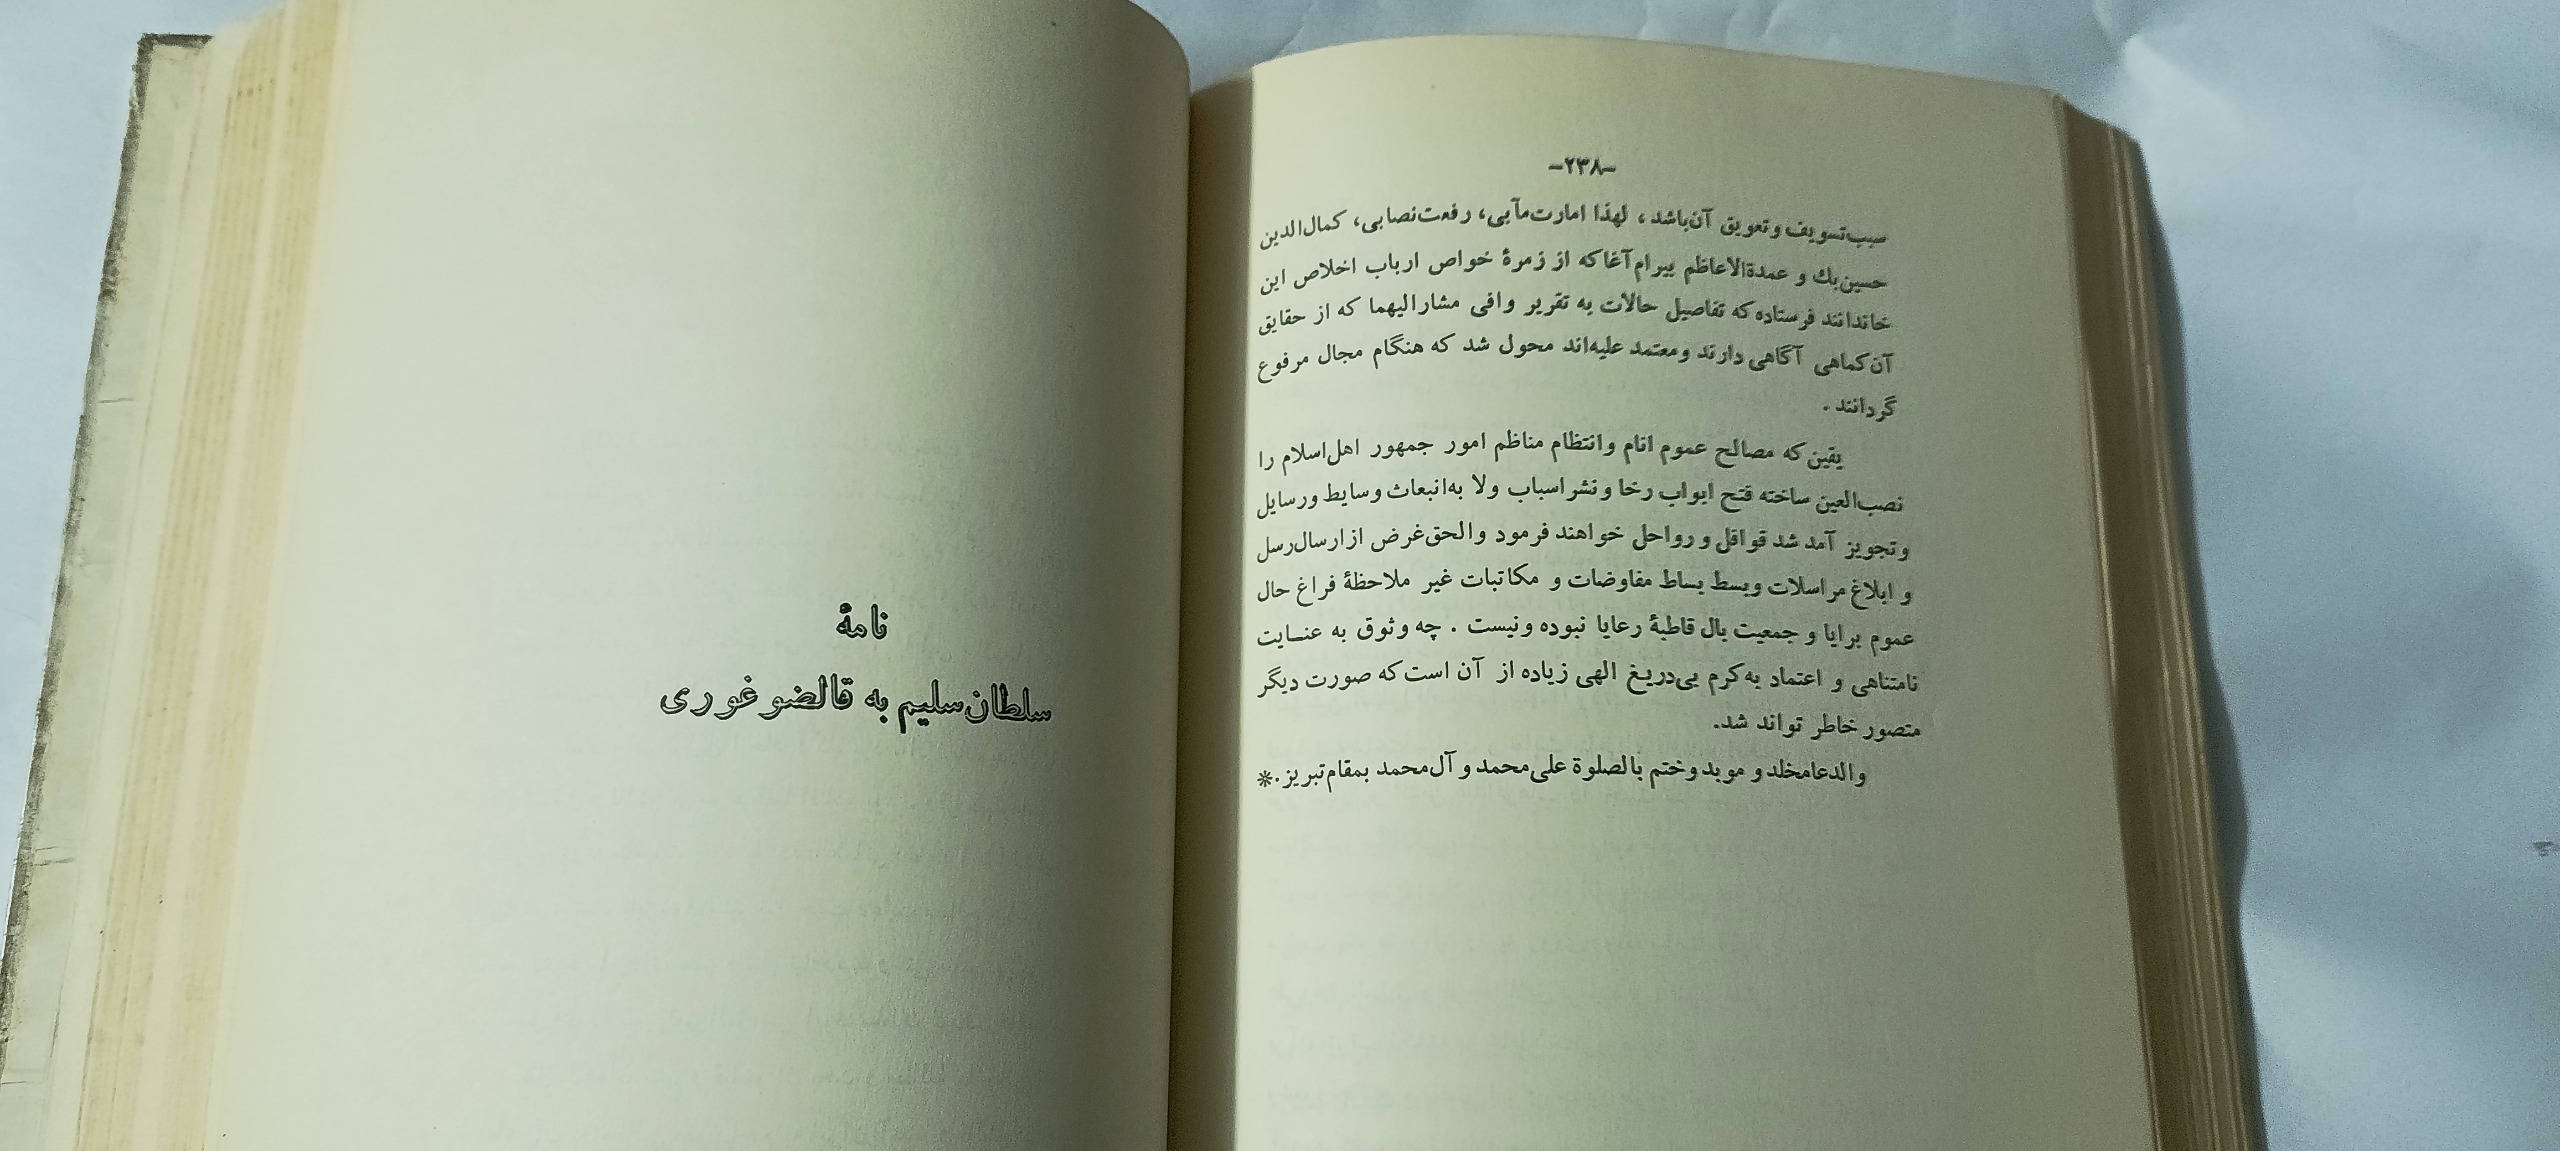 -۲۳۸-
سبب‌تسویف و تعویق آن‌باشد ، لهذا امارت‌مآبی، رفعت‌نصابی، کمال‌الدین
حسین‌بك و عمدةالاعاظم بیرام‌آغا که از زمرهٔ خواص ارباب اخلاص این
خاندانند فرستاده که تفاصیل حالات به تقریر وافی مشارالیهما که از حقایق
آن‌کماهی آگاهی دارند و معتمد علیه‌اند محول شد که هنگام مجال مرفوع
گردانند .
یقین که مصالح عموم انام و انتظام مناظم امور جمهور اهل‌اسلام را
نصب‌العین ساخته فتح ابواب رخا و نشر اسباب ولا به‌انبعاث وسایط ورسایل
و تجویز آمد شد قوافل و رواحل خواهند فرمود والحق‌غرض ازارسال‌رسل
و ابلاغ مراسلات وبسط بساط مفاوضات و مکاتبات غیر ملاحظهٔ فراغ حال
عموم برایا و جمعیت بال قاطبهٔ رعایا نبوده ونیست . چه وثوق به عنـایت
نامتناهی و اعتماد به‌کرم بی‌دریـغ الهی زیاده از آن است که صورت دیگر
متصور خاطر تواند شد.
والدعامخلد و موبد وختم بالصلوة علی‌محمد و آل‌محمد بمقام‌تبریز.*
نامهٔ
سلطان‌سلیم به قالضو غوری